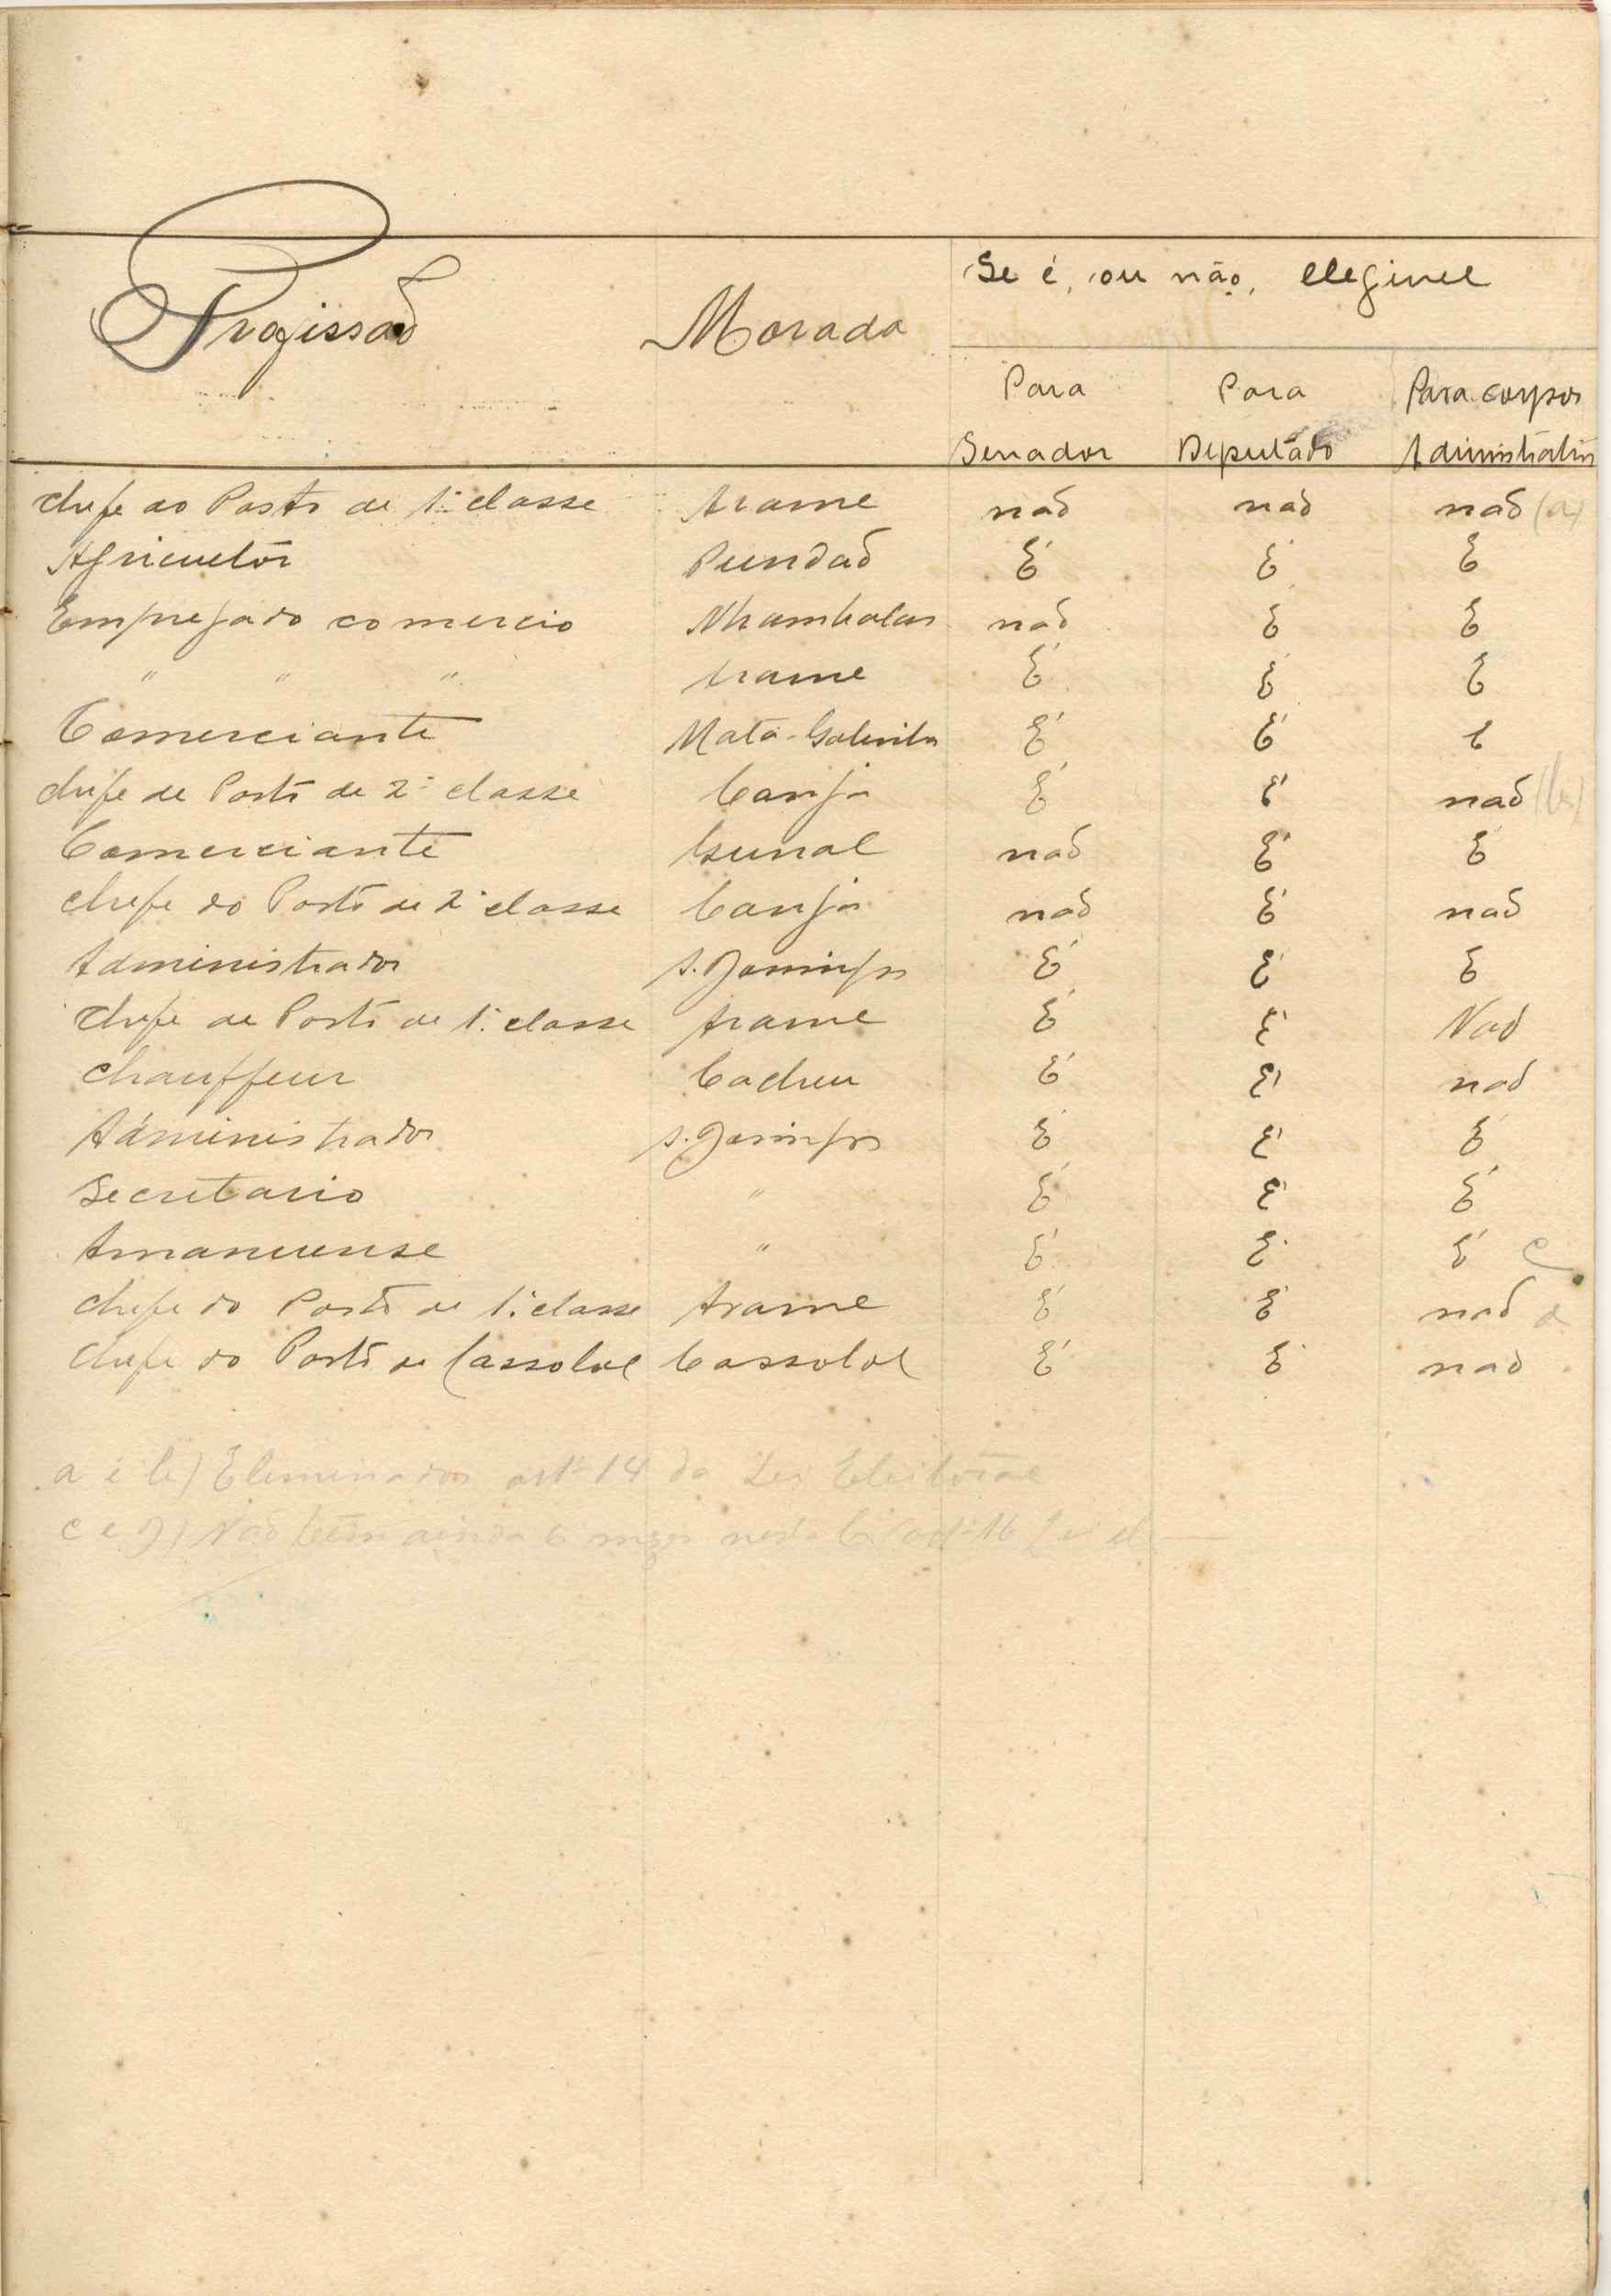 Profissaõ Morada Se é, ou não, elegivel
Para Para Para corpos
Senador Deputado Administrativos
Chefe do Posto de 1.ª classe Arame naõ naõ naõ (a)
Agricultor Pundaõ É É É
Empregado comercio naõ É É
" " " Arame É É É
Comerciante É É É
Chefe de Posto de 2.ª classe Canja É É naõ (b)
Comerciante naõ É É
Chefe do Posto de 2.ª classe Canja naõ É naõ
Administrador S. Domingos É É É
Chefe de Posto de 1.ª classe Arame É É Naõ
Chauffeur Cacheu É É naõ
Administrador S. Domingos É É É
Secretario " É É É
Amanuense " É É É c
Chefe do Posto de 1.ª classe Arame É É naõ d
Chefe do Posto de Cassolol Cassolol É É naõ
a e b) Eleminados artº 14 da Lei Eleitoral
c e d) Naõ tem ainda 6 mezes nesta